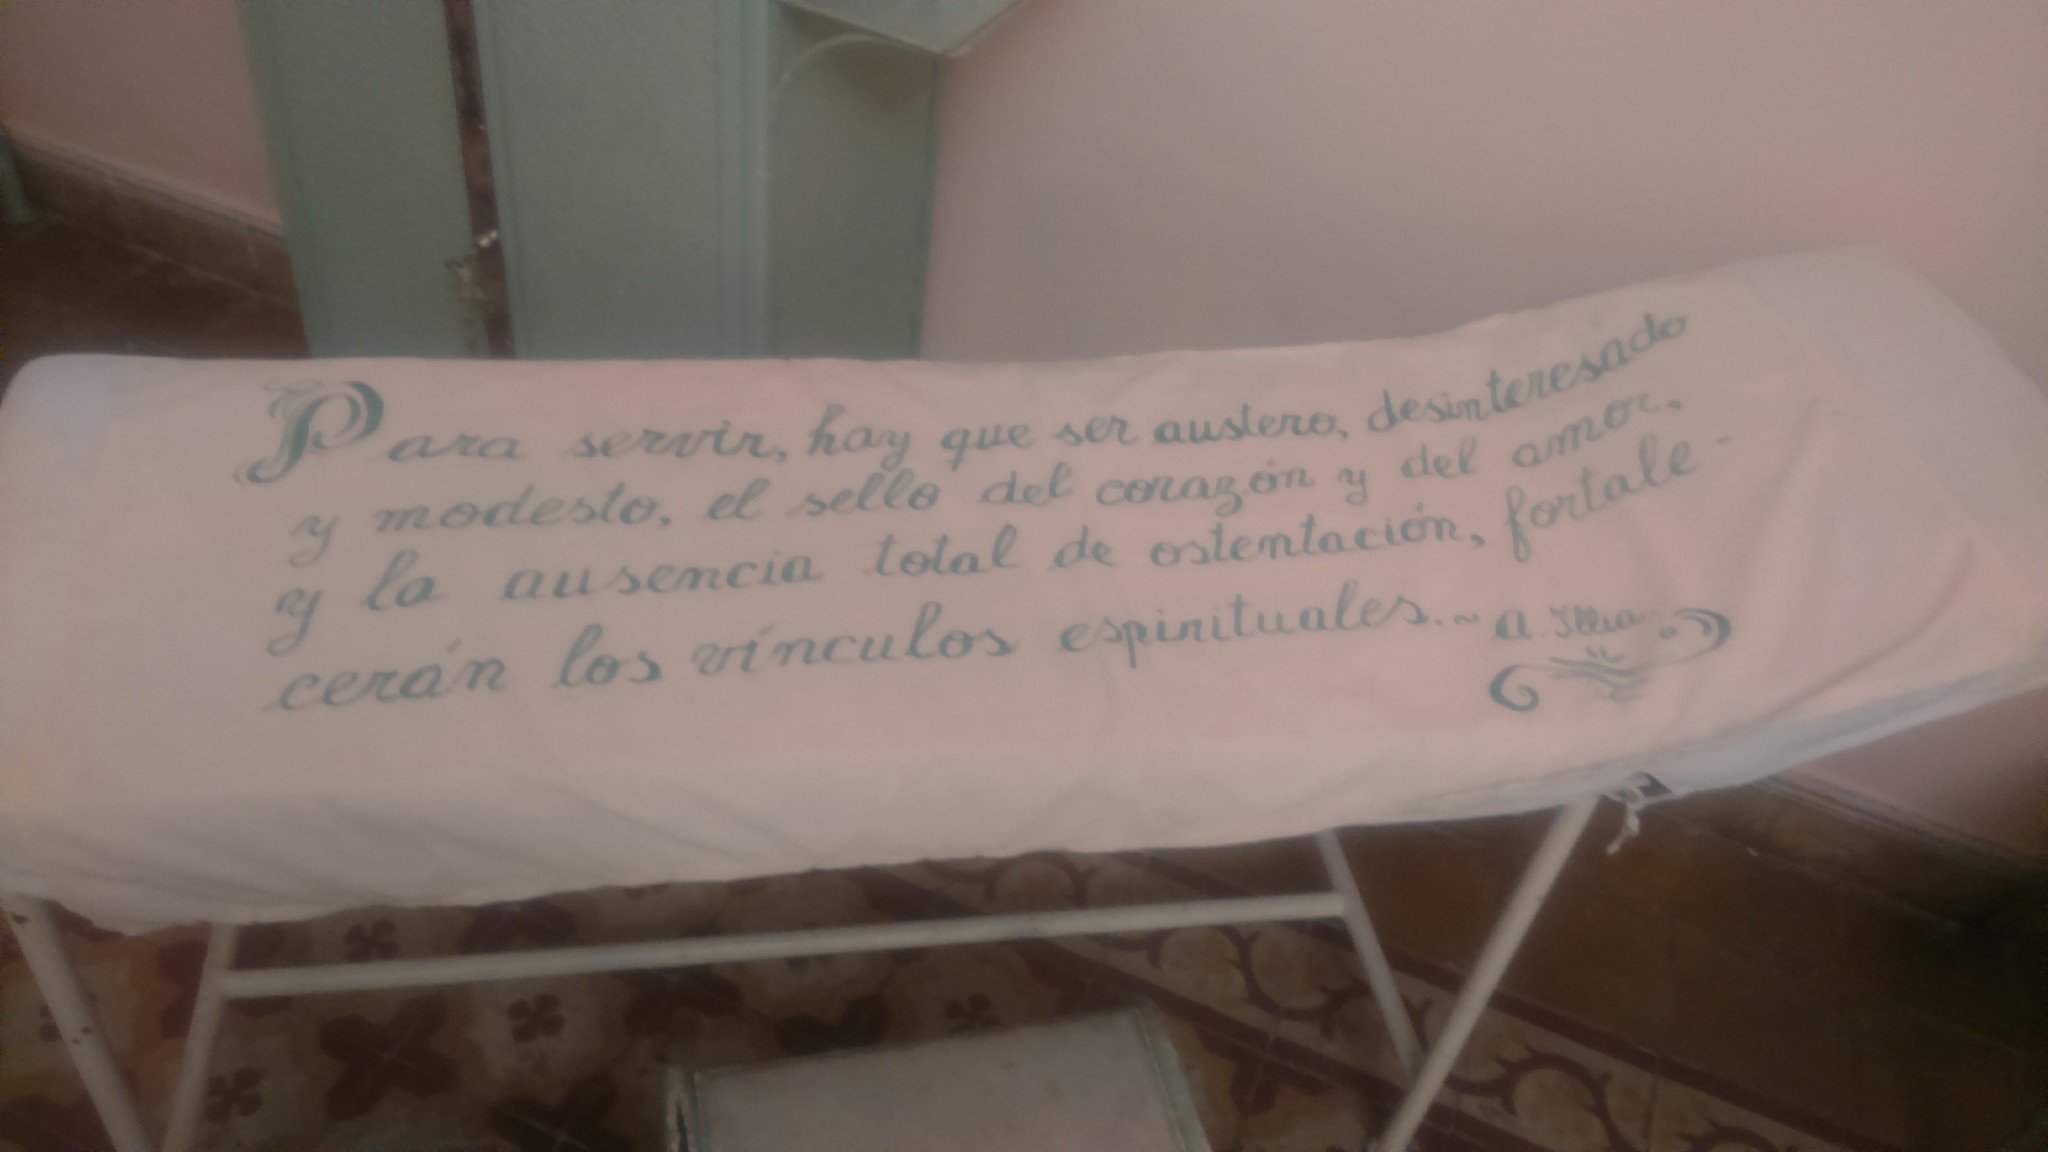 Para servir, hay que ser austero, desinteresado
y modesto, el sello del corazón y del amor,
y la ausencia total de ostentación, fortale-
cerán los vínculos espirituales..~ a Illia.